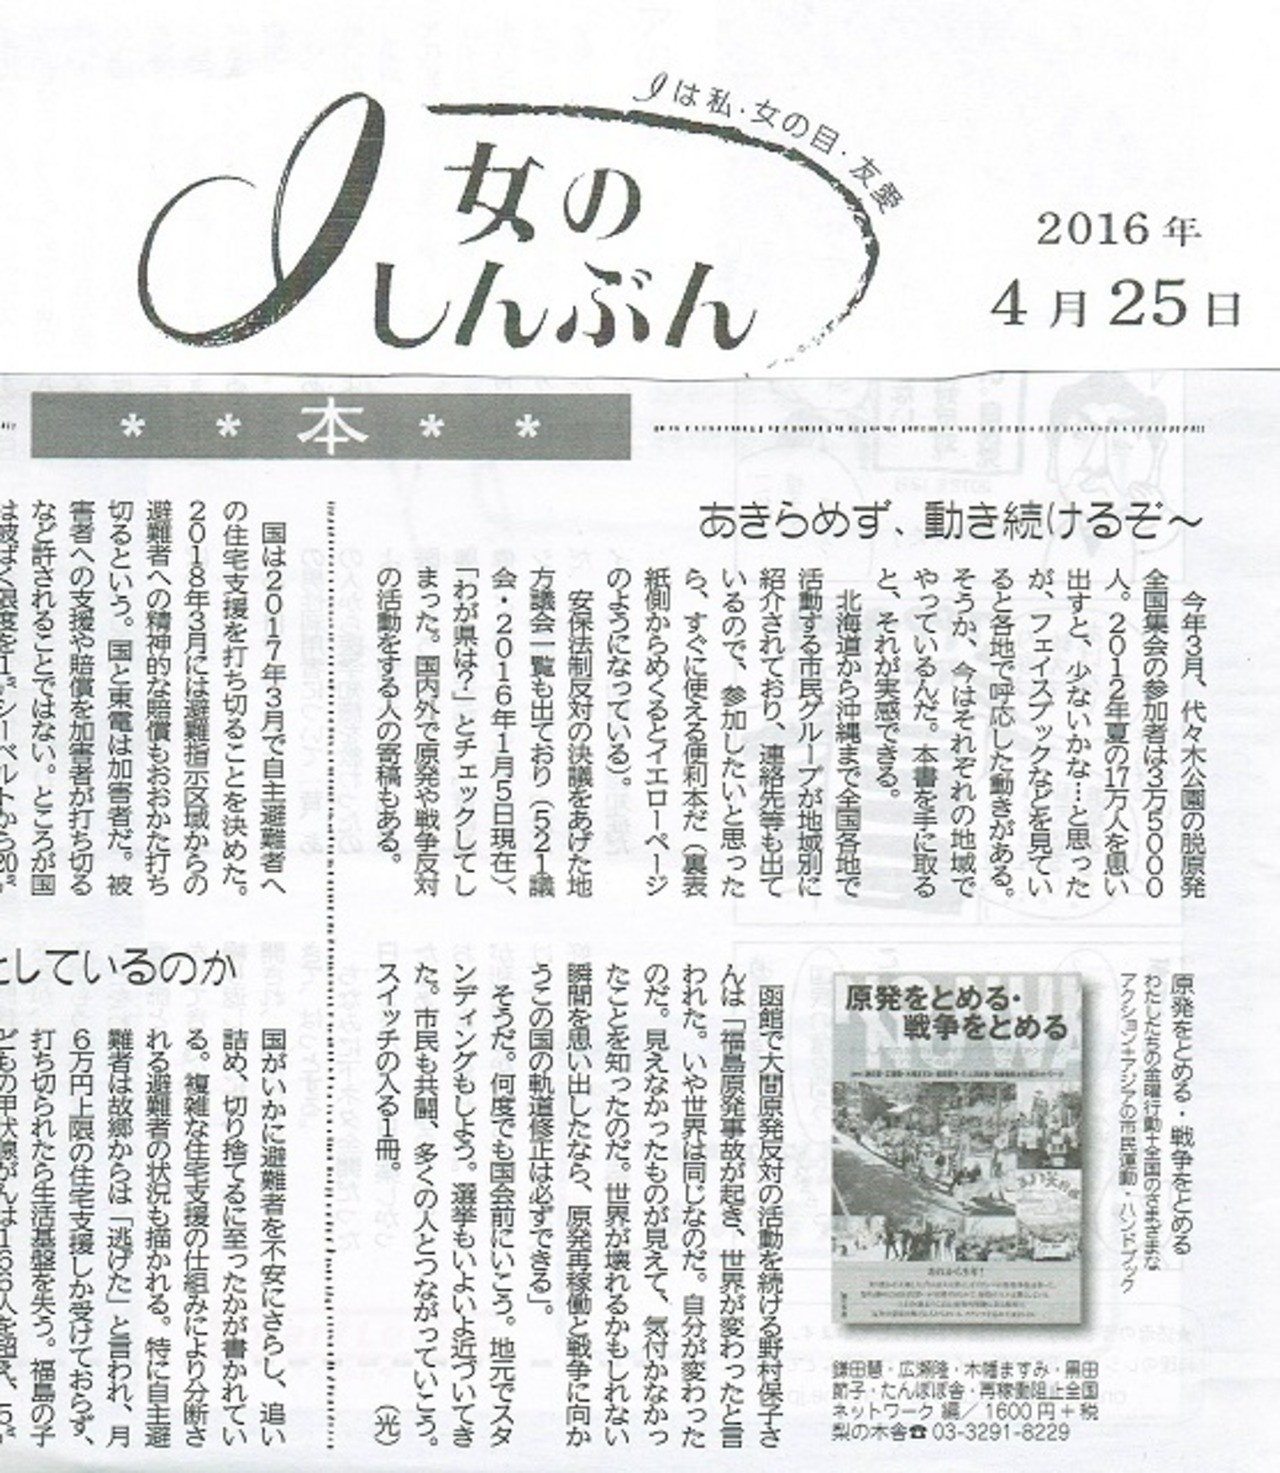 Iは私・女の目・友愛
I女の
しんぶん
2016年
4月25日
**本**
あきらめず、動き続けるぞ〜
今年3月、代々木公園の脱原発
全国集会の参加者は3万5000
人。2012年夏の17万人を思い
出すと、少ないかな…と思った
が、フェイスブックなどを見てい
ると各地で呼応した動きがある。
そうか、今はそれぞれの地域で
やっているんだ。本書を手に取る
と、それが実感できる。
北海道から沖縄まで全国各地で
活動する市民グループが地域別に
紹介されており、連絡先等も出て
いるので、参加したいと思った
ら、すぐに使える便利本だ(裏表
紙側からめくるとイエローページ
のようになっている)。
安保法制反対の決議をあげた地
方議会一覧も出ており(521議
会・2016年1月5日現在)、
「わが県は?」とチェックしてし
まった。国内外で原発や戦争反対
の活動をする人の寄稿もある。
函館で大間原発反対の活動を続ける野村保子さ
んは「福島原発事故が起き、世界が変わったと言
われた。いや世界は同じなのだ。自分が変わった
のだ。見えなかったものが見えて、気付かなかっ
たことを知ったのだ。世界が壊れるかもしれない
瞬間を思い出したなら、原発再稼働と戦争に向か
うこの国の軌道修正は必ずできる」。
そうだ。何度でも国会前にいこう。地元でスタ
ンディングもしよう。選挙もいよいよ近づいてき
た。市民も共闘、多くの人とつながっていこう。
スイッチの入る1冊。 (光)
原発をとめる・戦争をとめる
わたしたちの金曜行動+全国のさまざまな
アクション+アジアの市民運動・ハンドブック
原発をとめる・
戦争をとめる
鎌田慧・広瀬隆・木幡ますみ・黒田
節子・たんぽぽ舎・再稼働阻止全国
ネットワーク 編/1600円+税
梨の木舎☎03-3291-8229
国は2017年3月で自主避難者へ
の住宅支援を打ち切ることを決めた。
2018年3月には避難指示区域からの
避難者への精神的な賠償もおおかた打ち
切るという。国と東電は加害者だ。被
害者への支援や賠償を加害者が打ち切る
など許されることではない。ところが国
は被ばく限度を1㍉シーベルトから20㍉
としているのか
国がいかに避難者を不安にさらし、追い
詰め、切り捨てるに至ったかが書かれてい
る。複雑な住宅支援の仕組みにより分断さ
れる避難者の状況も描かれる。特に自主避
難者は故郷からは「逃げた」と言われ、月
6万円上限の住宅支援しか受けておらず、
打ち切られたら生活基盤を失う。福島の子
どもの甲状腺がんは166人を超え、